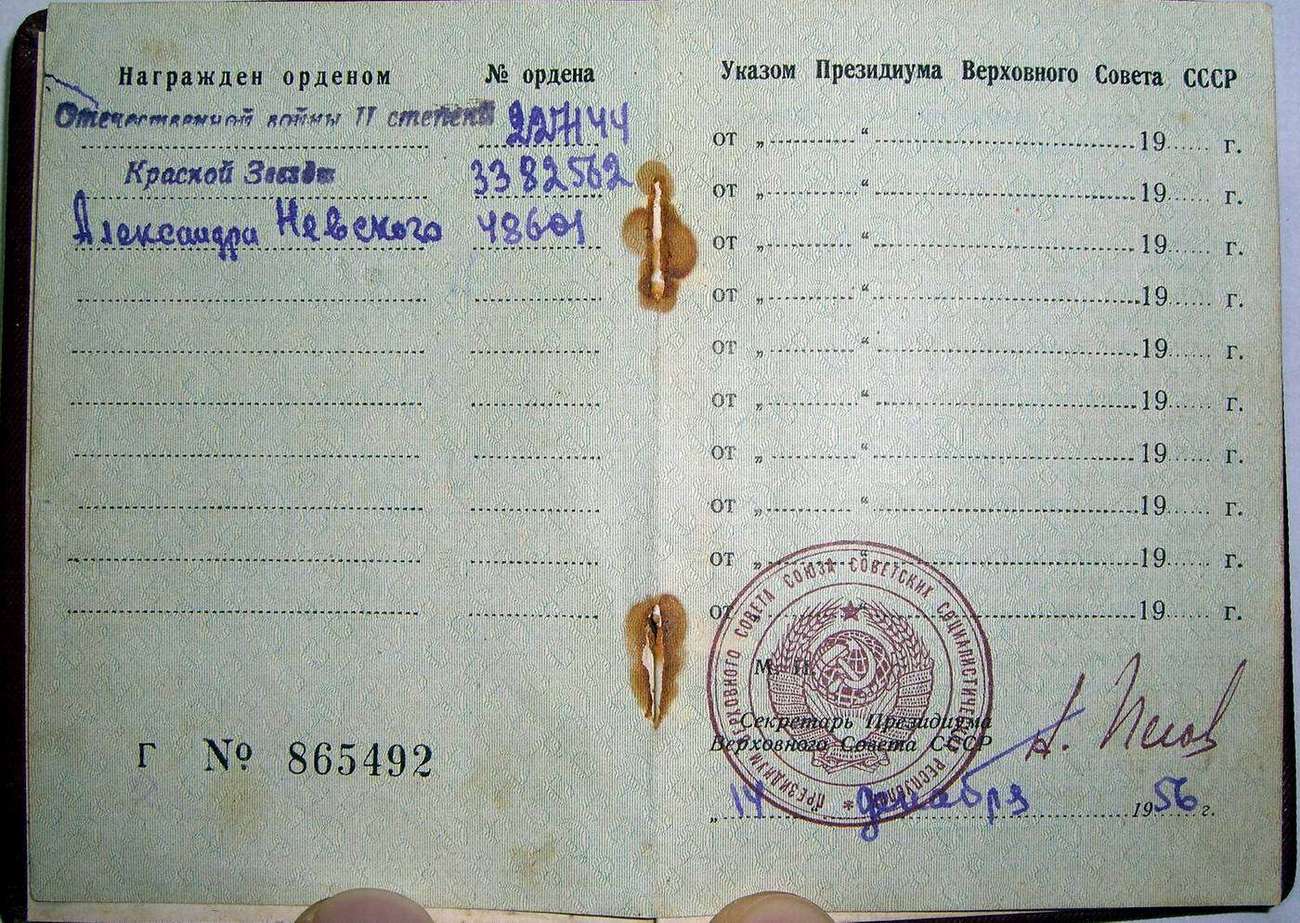 Награжден орденом № ордена
Отечественной войны II степени
Красной Звезды 3382562
Александра Невского 48601
Г № 865492
Указом Президиума Верховного Совета СССР
от „ “ 19 г.
от „ “ 19 г.
от „ “ 19 г.
от „ “ 19 г.
от „ “ 19 г.
от „ “ 19 г.
от „ “ 19 г.
от „ “ 19 г.
от „ “ 19 г.
от „ “ 19 г.
М. П.
Секретарь Президиума
Верховного Совета СССР
„ 14 декабря 1956 г.
ПРЕЗИДИУМ ВЕРХОВНОГО СОВЕТА СОЮЗА СОВЕТСКИХ СОЦИАЛИСТИЧЕСКИХ РЕСПУБЛИК